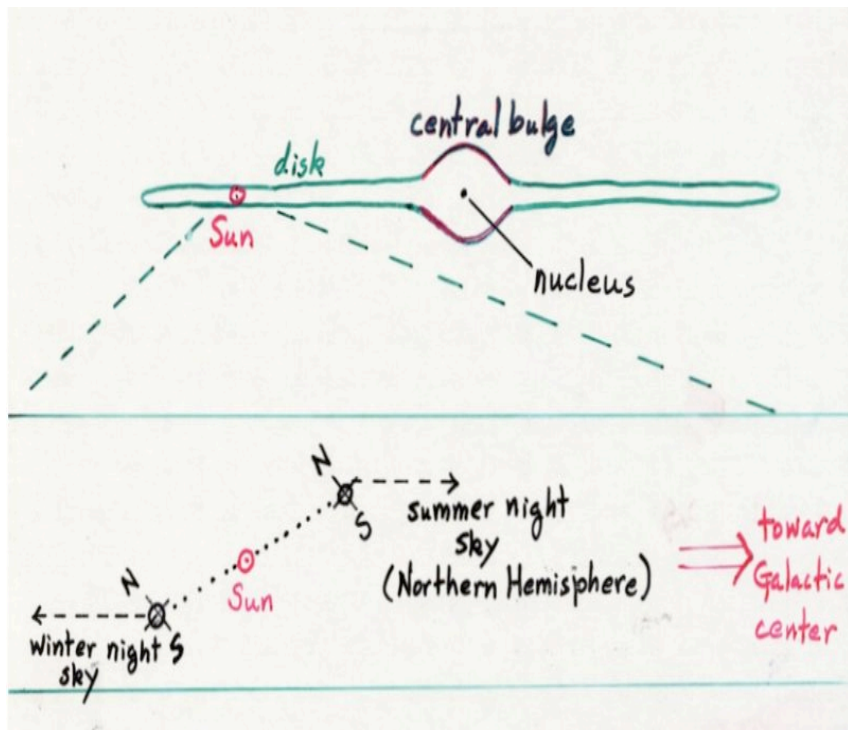 central bulge
disk
Sun
nucleus
N
S
summer night
sky
(Northern Hemisphere)
toward
Galactic
center
Sun
N
S
winter night
sky